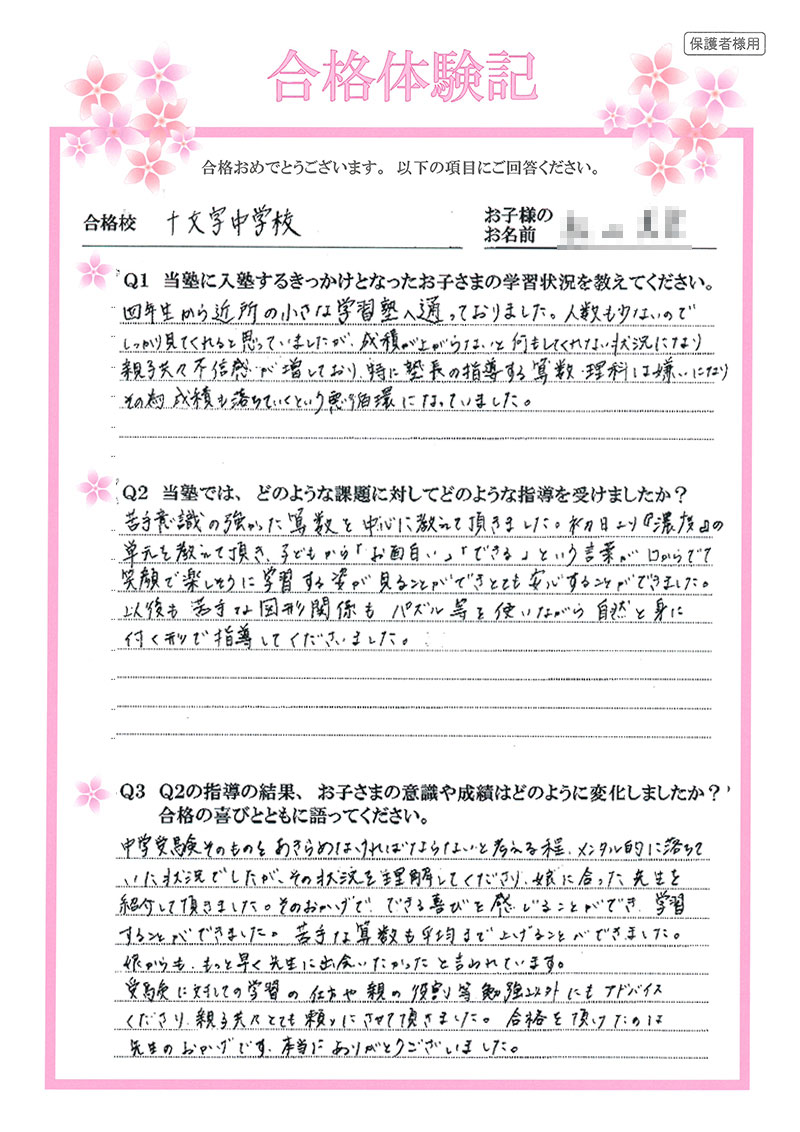 保護者様用
合格体験記
合格おめでとうございます。以下の項目にご回答ください。
合格校 十文字中学校
お子様の
お名前
Q1 当塾に入塾するきっかけとなったお子さまの学習状況を教えてください。
四年生から近所の小さな学習塾へ通っておりました。人数も少ないので
しっかり見てくれると思っていましたが、成積が上がらないと何もしてくれない状況になり
親子共々不信感が増しており、特に塾長の指導する算数・理科は嫌いになり
その為成積も落ちていくという悪循環になっていました。
Q2 当塾では、どのような課題に対してどのような指導を受けましたか？
苦手意識の強かった算数を中心に教えて頂きました。初日より『濃度』の
単元を教えて頂き、子どもから「お面白い」「できる」という言葉が口からでて
笑顔で楽しそうに学習する姿が見ることができとても安心することができました。
以後も苦手な図形関係もパズル等を使いながら自然と身に
付く形で指導してくださいました。
Q3 Q2の指導の結果、お子さまの意識や成績はどのように変化しましたか？
合格の喜びとともに語ってください。
中学受験そのものをあきらめなければならないと考える程、メンタル的に落ちて
いた状況でしたが、その状況を理解してくださり、娘に合った先生を
紹介して頂きました。そのおかげで、できる喜びを感じることができ、学習
することができました。苦手な算数も平均まで上げることができました。
娘からも、もっと早く先生に出会いたかったと言われています。
受験に対しての学習の仕方や親の役割等勉強以外にもアドバイス
くださり、親子共々とても頼りにさせて頂きました。合格を頂けたのは
先生のおかげです、本当にありがとうございました。